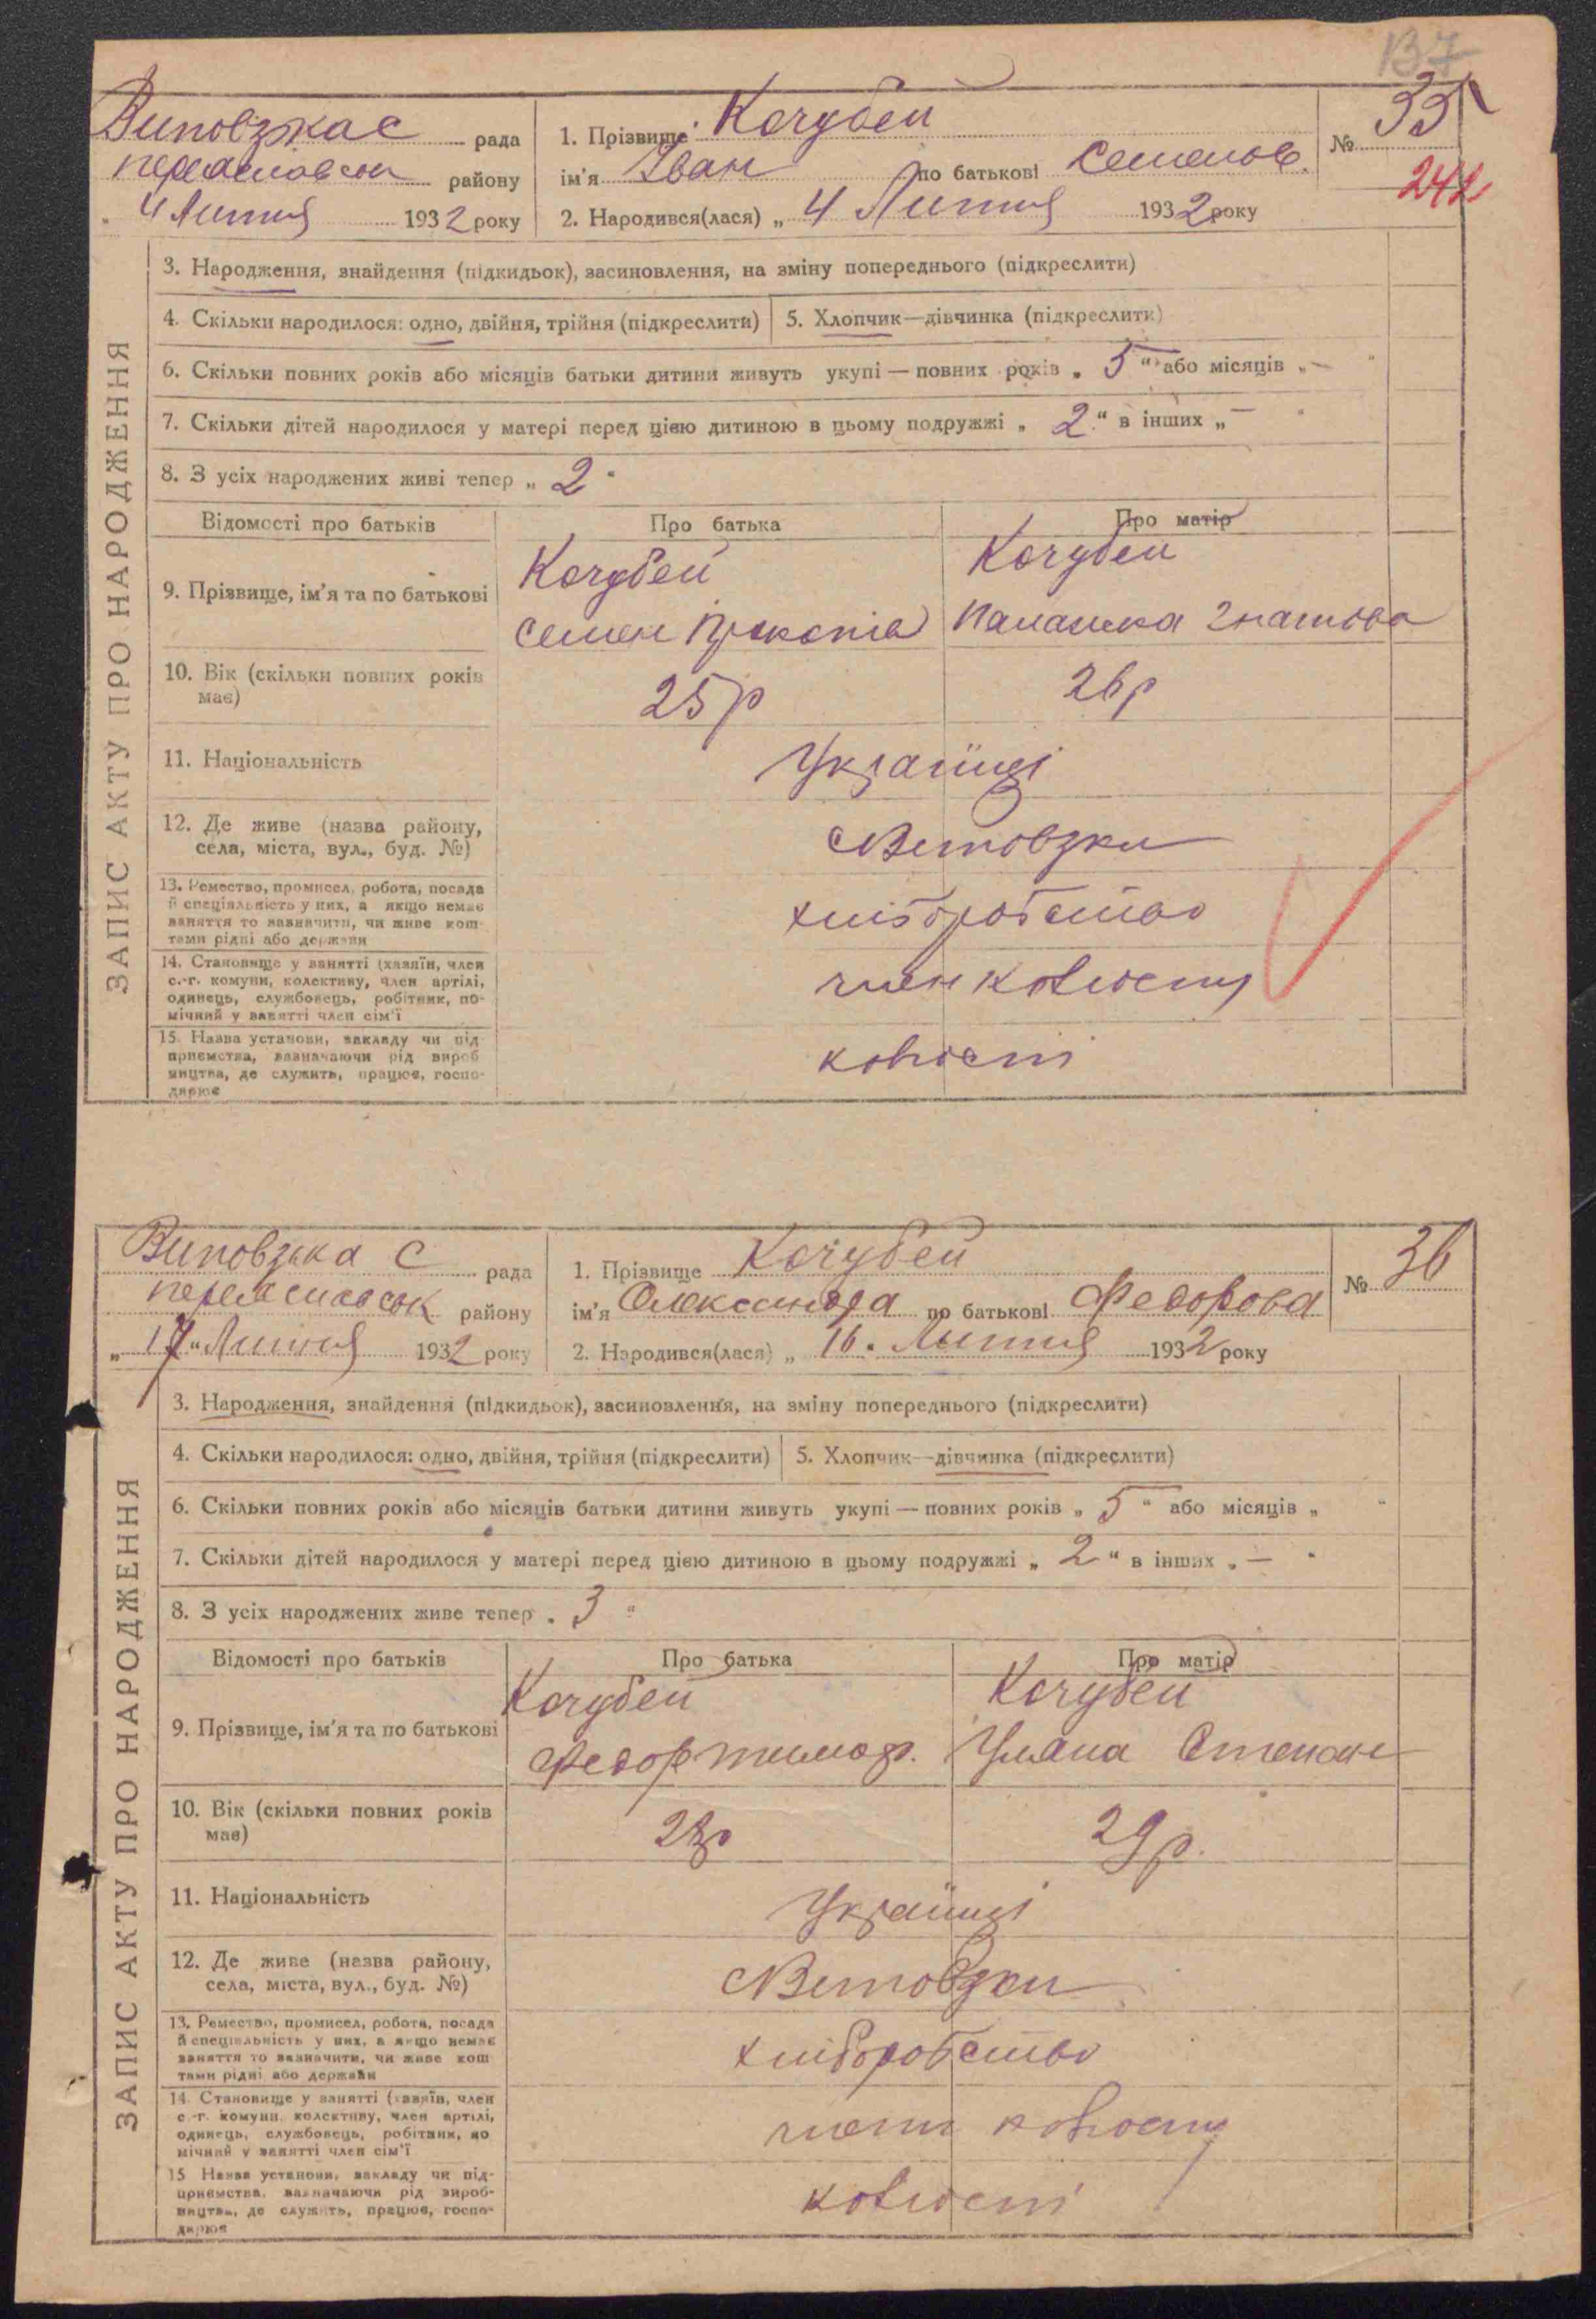 137
Виповзкас рада
переяславськ району
„ 4 Липня 1932 року
1. Прізвище Кочубей
ім'я Іван по батькові Семенов.
2. Народився(лася) „ 4 Липня 1932 року
№ 35
242
ЗАПИС АКТУ ПРО НАРОДЖЕННЯ
3. Народження, знайдення (підкидьок), засиновлення, на зміну попереднього (підкреслити)
4. Скільки народилося: одно, двійня, трійня (підкреслити)
5. Хлопчик—дівчинка (підкреслити)
6. Скільки повних років або місяців батьки дитини живуть укупі — повних років „ 5 “ або місяців „ — “
7. Скільки дітей народилося у матері перед цією дитиною в цьому подружжі „ 2 “ в інших „ — “
8. З усіх народжених живі тепер „ 2 “
Відомості про батьків
Про батька
Про матір
9. Прізвище, ім'я та по батькові
Кочубей
Семен Прокопів
Кочубей
Палашка Гнатова
10. Вік (скільки повних років
має)
25р
26р
11. Національність
Українці
12. Де живе (назва району,
села, міста, вул., буд. №)
с Виповзки
13. Ремество, промисел, робота, посада
й спеціяльність у них, а якщо немає
заняття то зазначити, чи живе кош-
тами рідні або держави
хліборобство
14. Становище у занятті (хазяїн, член
с.-г. комуни, колективу, член артілі,
одинець, службовець, робітник, по-
мічний у занятті член сім'ї
член колгоспу
15. Назва установи, закладу чи під-
приємства, зазначаючи рід вироб-
ництва, де служить, працює, госпо-
дарює
колгоспі
Виповзька С рада
переяславськ району
„ 17 “ Липня 1932 року
1. Прізвище Кочубей
ім'я Олександра по батькові Федорова
2. Народився(лася) „ 16 . Липня 1932 року
№ 36
ЗАПИС АКТУ ПРО НАРОДЖЕННЯ
3. Народження, знайдення (підкидьок), засиновлення, на зміну попереднього (підкреслити)
4. Скільки народилося: одно, двійня, трійня (підкреслити)
5. Хлопчик—дівчинка (підкреслити)
6. Скільки повних років або місяців батьки дитини живуть укупі — повних років „ 5 “ або місяців „ “
7. Скільки дітей народилося у матері перед цією дитиною в цьому подружжі „ 2 “ в інших „ — “
8. З усіх народжених живе тепер „ 3 “
Відомості про батьків
Про батька
Про матір
9. Прізвище, ім'я та по батькові
Кочубей
Федор Тимоф.
Кочубей
Уляна Степан
10. Вік (скільки повних років
має)
29р.
11. Національність
Українці
12. Де живе (назва району,
села, міста, вул., буд. №)
с Виповзки
13. Ремество, промисел, робота, посада
й спеціяльність у них, а якщо немає
заняття то зазначити, чи живе кош-
тами рідні або держави
хліборобство
14. Становище у занятті (хазяїн, член
с.-г. комуни, колективу, член артілі,
одинець, службовець, робітник, по-
мічний у занятті член сім'ї
члени колгоспу
15. Назва установи, закладу чи під-
приємства, зазначаючи рід вироб-
ництва, де служить, працює, госпо-
дарює
колгоспі